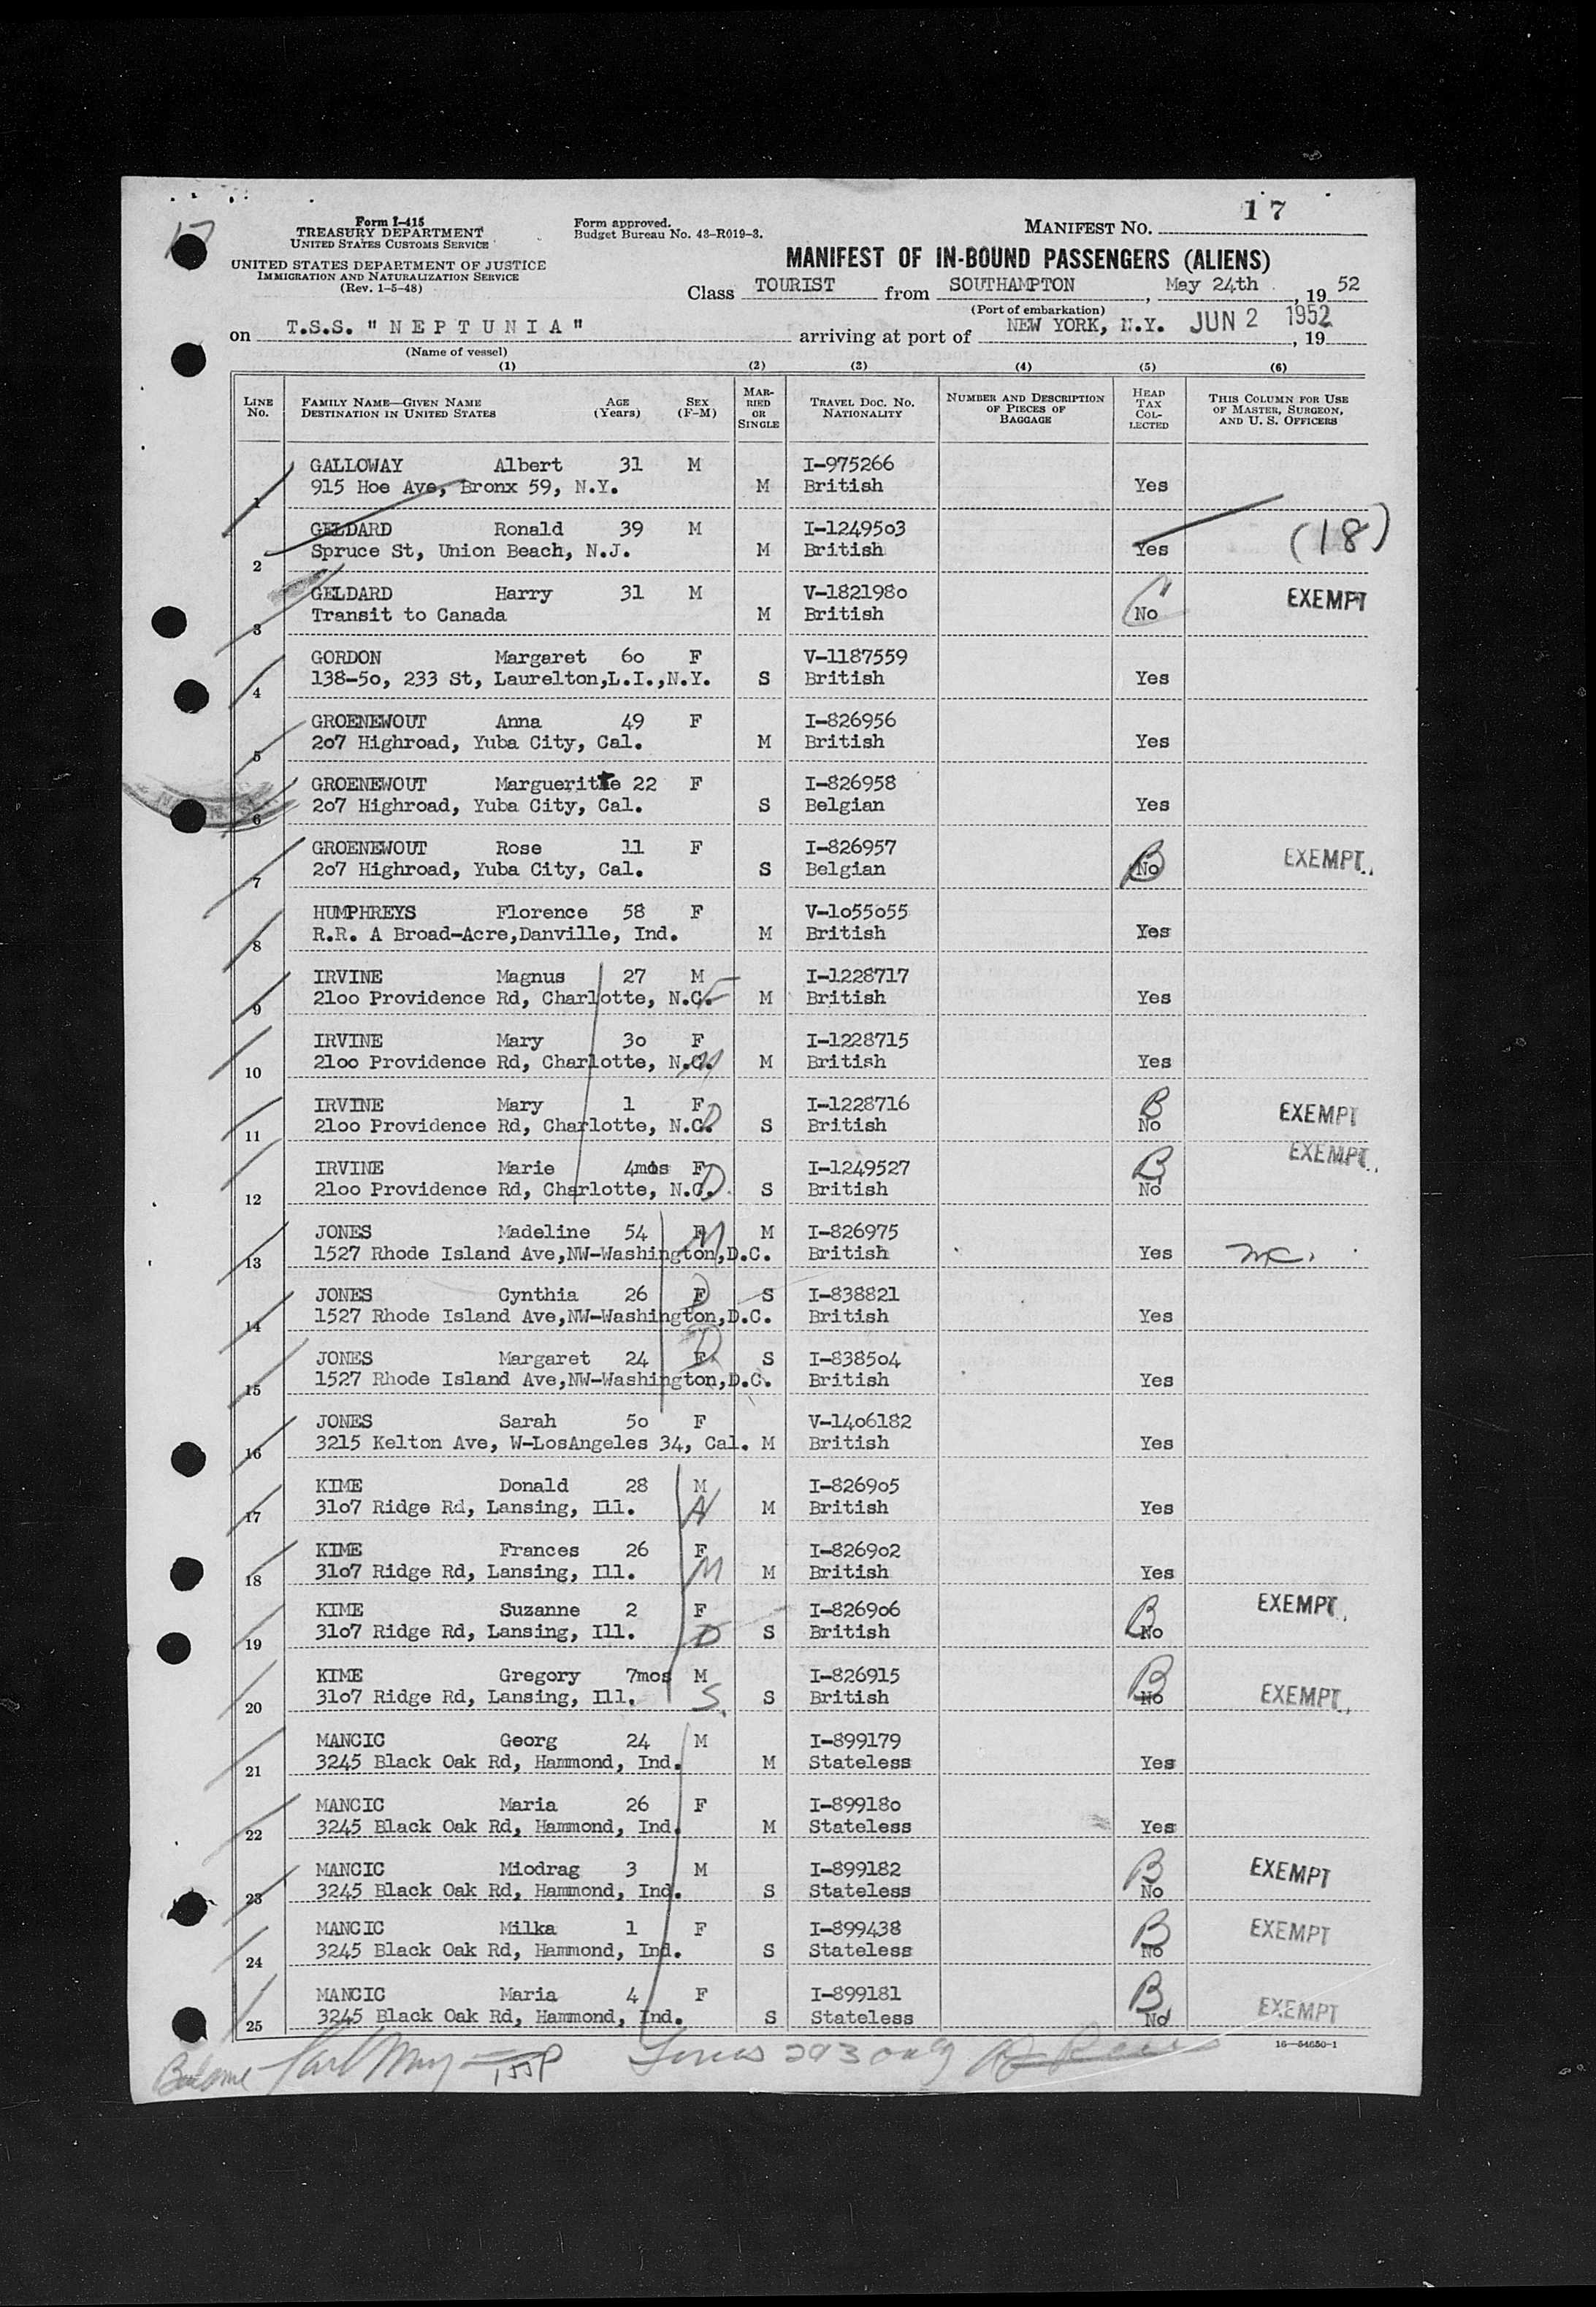 17
17
Form I-415
TREASURY DEPARTMENT
UNITED STATES CUSTOMS SERVICE
UNITED STATES DEPARTMENT OF JUSTICE
IMMIGRATION AND NATURALIZATION SERVICE
(Rev. 1-5-48)
Form approved.
Budget Bureau No. 43-R019-3.
MANIFEST NO.
MANIFEST OF IN-BOUND PASSENGERS (ALIENS)
Class TOURIST from SOUTHAMPTON, May 24th, 19 52
(Port of embarkation)
on T.S.S. "NEPTUNIA" arriving at port of NEW YORK, N.Y. JUN 2 1952, 19
(Name of vessel)
(1) (2) (3) (4) (5) (6)
LINE No. FAMILY NAME—GIVEN NAME DESTINATION IN UNITED STATES AGE (Years) SEX (F-M) MARRIED OR SINGLE TRAVEL DOC. NO. NATIONALITY NUMBER AND DESCRIPTION OF PIECES OF BAGGAGE HEAD TAX COLLECTED THIS COLUMN FOR USE OF MASTER, SURGEON, AND U. S. OFFICERS
GALLOWAY Albert 31 M I-975266
1 915 Hoe Ave, Bronx 59, N.Y. M British Yes
GELDARD Ronald 39 M I-1249503 (18)
2 Spruce St, Union Beach, N.J. M British Yes
GELDARD Harry 31 M V-1821980 C EXEMPT
3 Transit to Canada M British No
GORDON Margaret 60 F V-1187559
4 138-50, 233 St, Laurelton,L.I.,N.Y. S British Yes
GROENEWOUT Anna 49 F I-826956
5 207 Highroad, Yuba City, Cal. M British Yes
GROENEWOUT Margueritte 22 F I-826958
6 207 Highroad, Yuba City, Cal. S Belgian Yes
GROENEWOUT Rose 11 F I-826957 B EXEMPT
7 207 Highroad, Yuba City, Cal. S Belgian No
HUMPHREYS Florence 58 F V-1055055
8 R.R. A Broad-Acre,Danville, Ind. M British Yes
IRVINE Magnus 27 M I-1228717
9 2100 Providence Rd, Charlotte, N.C. F M British Yes
IRVINE Mary 30 F I-1228715
10 2100 Providence Rd, Charlotte, N.C. M M British Yes
IRVINE Mary 1 F D I-1228716 B EXEMPT
11 2100 Providence Rd, Charlotte, N.C. S British No
IRVINE Marie 4mos F D I-1249527 B EXEMPT
12 2100 Providence Rd, Charlotte, N.C. S British No
JONES Madeline 54 F M M I-826975
13 1527 Rhode Island Ave,NW-Washington,D.C. British Yes mc.
JONES Cynthia 26 F D S I-838821
14 1527 Rhode Island Ave,NW-Washington,D.C. British Yes
JONES Margaret 24 F D S I-838504
15 1527 Rhode Island Ave,NW-Washington,D.C. British Yes
JONES Sarah 50 F V-1406182
16 3215 Kelton Ave, W-LosAngeles 34, Cal. M British Yes
KIME Donald 28 M I-826905
17 3107 Ridge Rd, Lansing, Ill. M British Yes
KIME Frances 26 F I-826902
18 3107 Ridge Rd, Lansing, Ill. M M British Yes
KIME Suzanne 2 F I-826906 B EXEMPT
19 3107 Ridge Rd, Lansing, Ill. D S British No
KIME Gregory 7mos M I-826915 B
20 3107 Ridge Rd, Lansing, Ill. S S British No EXEMPT
MANCIC Georg 24 M I-899179
21 3245 Black Oak Rd, Hammond, Ind. M Stateless Yes
MANCIC Maria 26 F I-899180
22 3245 Black Oak Rd, Hammond, Ind. M Stateless Yes
MANCIC Miodrag 3 M I-899182 B EXEMPT
23 3245 Black Oak Rd, Hammond, Ind. S Stateless No
MANCIC Milka 1 F I-899438 B EXEMPT
24 3245 Black Oak Rd, Hammond, Ind. S Stateless No
MANCIC Maria 4 F I-899181 B EXEMPT
25 3245 Black Oak Rd, Hammond, Ind. S Stateless No
16—54650-1